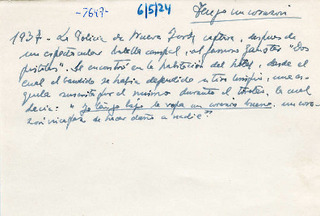 -7647-
6/5/24
Tengo un corazón
1937 - La Policía de Nueva York captura, después de
un espectacular batalla campal, al famoso gangster "Dos
pistolas". Se encontró en la habitación del hotel, desde el
cual el bandido se había defendido a tiro limpio, una es-
quela suscrita por el mismo durante el tiroteo, la cual
decía: "Yo tengo bajo la ropa un corazón bueno. un cora-
zón incapaz de hacer daño a nadie"